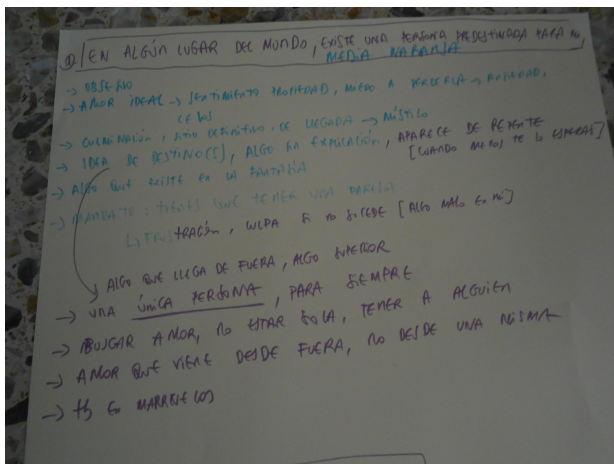 ① EN ALGÚN LUGAR DEL MUNDO, EXISTE UNA PERSONA PREDESTINADA PARA MI,
MEDIA NARANJA
→ OBSESIÓ
→ AMOR IDEAL → SENTIMIENTO PROPIEDAD, MIEDO A PERDERLA → ANSIEDAD,
CELOS
→ CULMINACIÓN, SITIO DEFINITIVO, DE LLEGADA → MÍSTICO
→ IDEA DE DESTINO(S), ALGO SIN EXPLICACIÓN, APARECE DE REPENTE
[CUANDO MENOS TE LO ESPERAS]
→ ALGO QUE EXISTE EN LA FANTASÍA
→ MANDATO: TIENES QUE TENER UNA PAREJA
↳ FRUSTRACIÓN, CULPA SI NO SUCEDE [ALGO MALO EN MÍ]
ALGO QUE LLEGA DE FUERA, ALGO SUPERIOR
→ UNA ÚNICA PERSONA, PARA SIEMPRE
→ BUSCAR AMOR, NO ESTAR SOLA, TENER A ALGUIEN
→ AMOR QUE VIENE DESDE FUERA, NO DESDE UNA MISMA
→ EN MARRUECOS